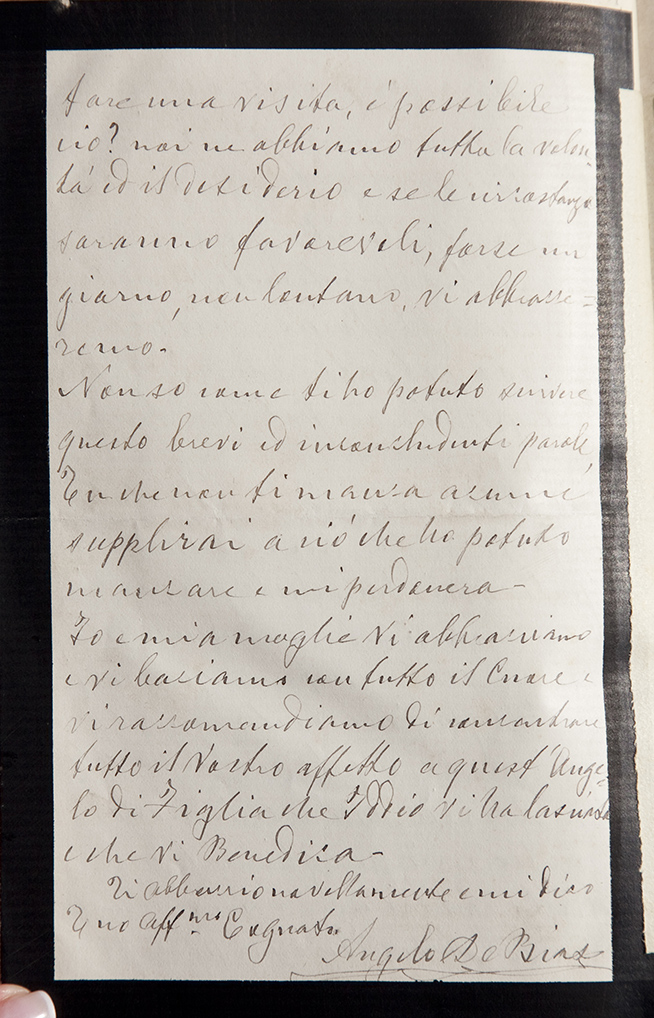 fare una visita, è possibile
ciò? noi ne abbiamo tutta la volon-
tà ed il desiderio e se le circostanze
saranno favorevoli, forse un
giorno, non lontano, vi abbracce=
remo.
Non so come ti ho potuto scrivere
queste brevi ed inconcludenti parole
Tu che non ti manca acume
supplirai a ciò che ho potuto
mancare e mi perdonera-
Io e mia moglie vi abbracciamo
e vi baciamo con tutto il Cuore e
vi raccomandiamo di concentrare
tutto il Vostro affetto a quest'Ange-
lo di Figlia che Iddio vi ha lasciata
e che vi Benedica-
Ti abbraccio novellamente e mi dico
Tuo Aff.mo Cognato
Angelo De Bias